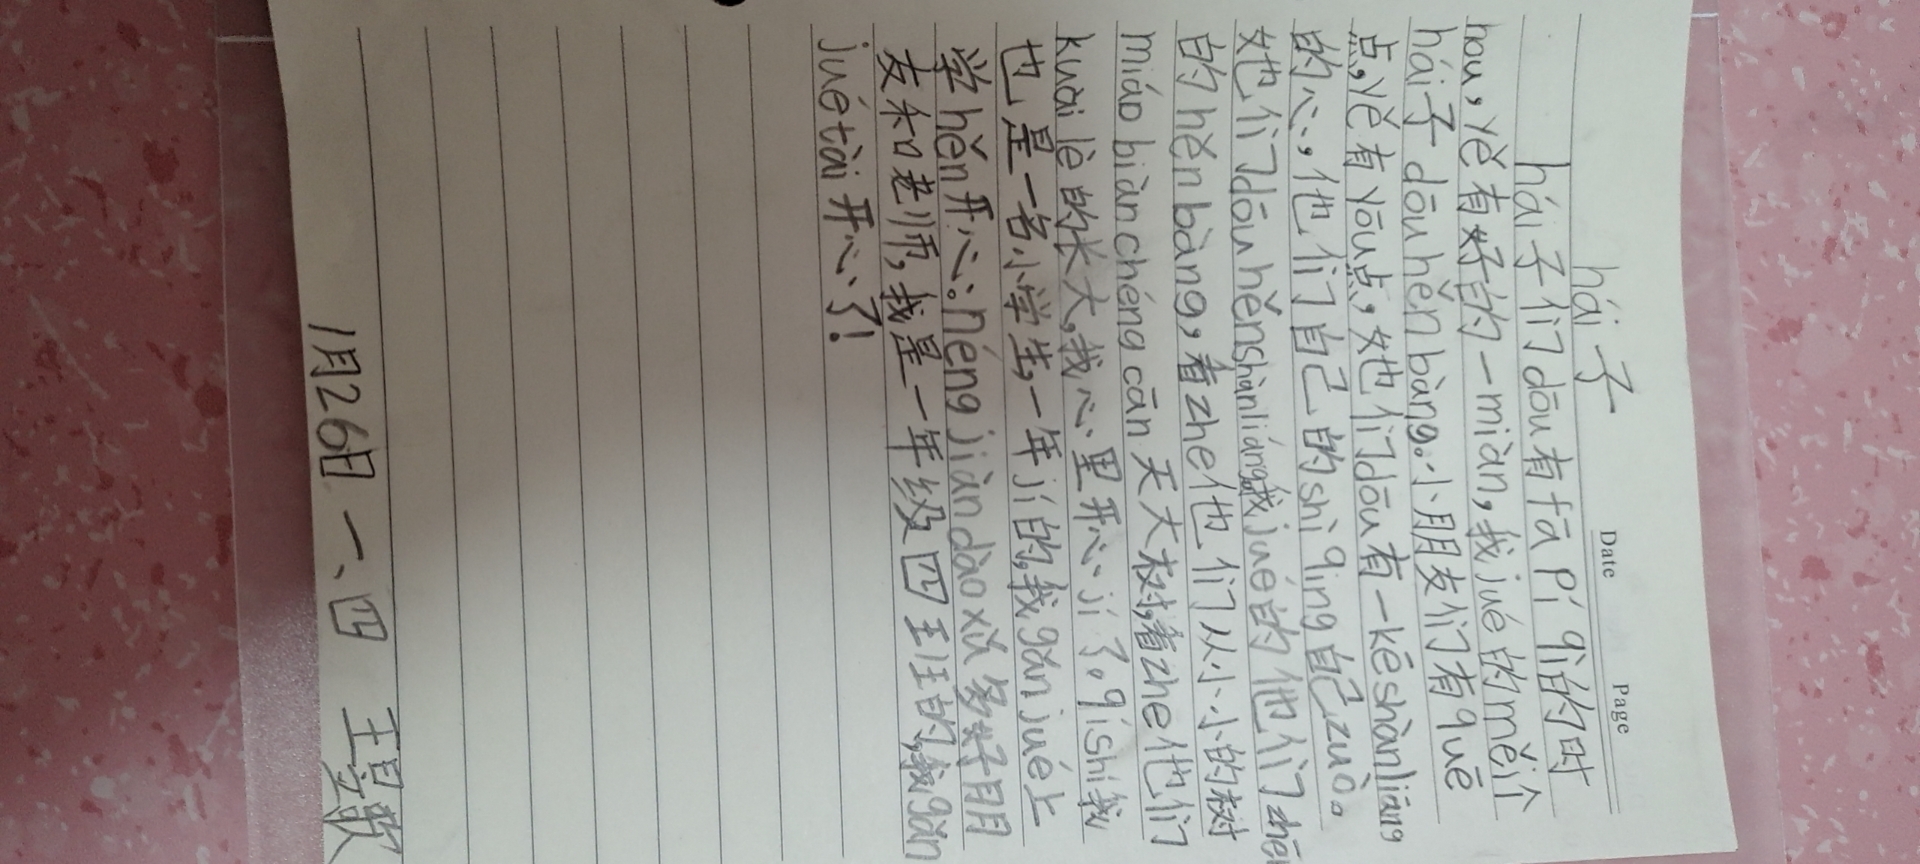 Date Page
hái子
hái子们dōu有fā pí qì的时
hou，yě有好的一miàn，我jué的měi个
hái子dōu hěn bàng。小朋友们有quē
点，yě有yōu点，她们dōu有一kē shàn liáng
的心，他们自己的shì qing自己zuò。
她们dōu hěn shàn liáng我jué的他们zhēn
的hěn bàng，看zhe他们从小小的树
miáo biàn chéng cān天大树，看zhe他们
kuài lè的长大，我心里开心jí了。qí shí我
也是一名小学生，一年jí的，我gǎn jué上
学hěn开心。néng jiàn dào xǔ多好朋
友和老师，我是一年级四班的，我gǎn
jué tài开心了！
1月26日 一、四 王